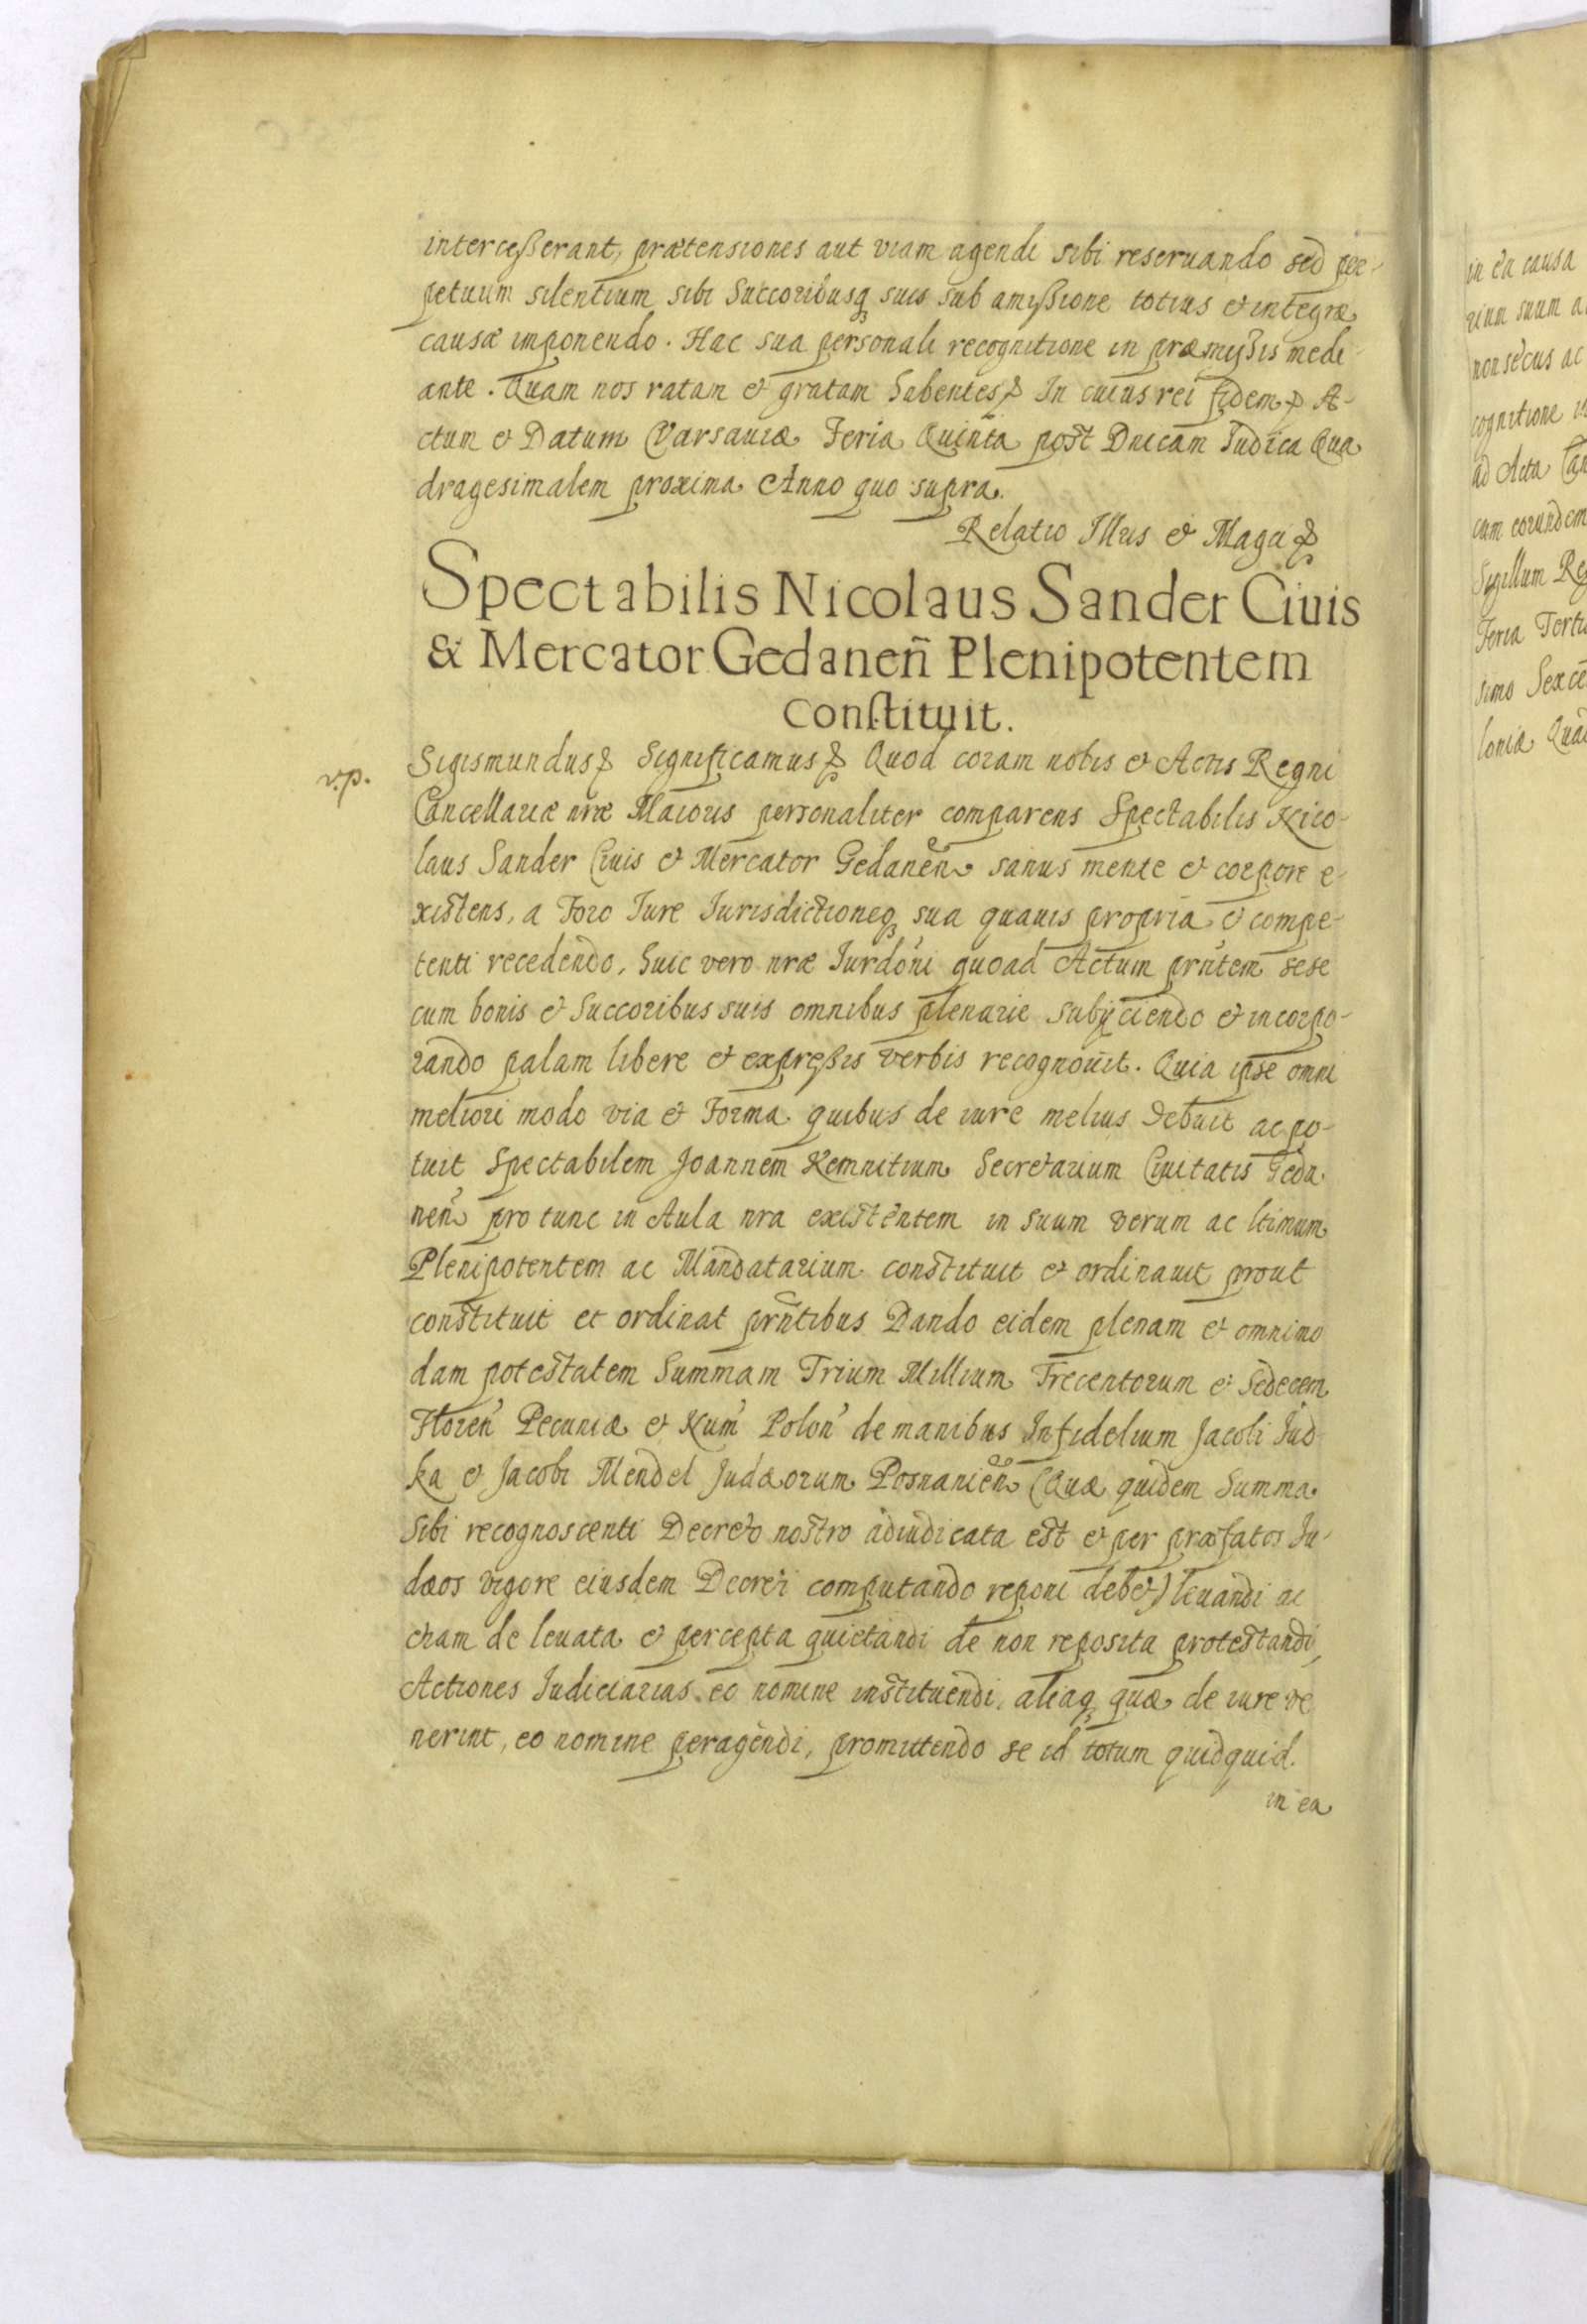 intercesserant, prætensiones aut viam agendi sibi reseruando sed per-
petuum silentium sibi Succoribusq suis sub amissione totius et integræ
causæ imponendo. Hac sua personali recognitione in præmissis medi
ante. Quam nos ratam et gratam habentes etc In cuius rei fidem etc A-
ctum et Datum Varsauiæ Feria Quinta post Dnicam Iudica Qua
dragesimalem proxima Anno quo supra.
Relatio Illris et Magci etc
Spectabilis Nicolaus Sander Ciuis
& Mercator Gedaneñ Plenipotentem
Constituit.
v.p.
Sigismundus etc Significamus etc Quod coram nobis et Actis Regni
Cancellariæ nræ Maioris personaliter comparens Spectabilis Nico-
laus Sander Ciuis et Mercator Gedaneñ sanus mente et corpore e-
xistens, a Foro Iure Iurisdictioneq sua quauis propria et compe-
tenti recedendo, huic vero nræ Iurdoni quoad Actum prñtem sese
cum bonis et Succoribus suis omnibus plenarie subijciendo et incorpo-
rando palam libere et expressis verbis recognouit. Quia ipse omni
meliori modo via et Forma quibus de iure melius debuit ac po-
tuit Spectabilem Joannem Kemnitium Secretarium Ciuitatis Geda
neñ pro tunc in Aula nra existentem in suum verum ac ltimum
Plenipotentem ac Mandatarium constituit et ordinauit prout
constituit et ordinat prñtibus Dando eidem plenam et omnimo
dam potestatem Summam Trium Millium Trecentorum et Sedecem
Floreñ Pecuniæ et Num Poloñ de manibus Infidelium Jacobi Jud
ka et Jacobi Mendel Judæorum Posnanieñ (Quæ quidem Summa
sibi recognoscenti Decreto nostro adiudicata est et per præfatos Iu-
dæos vigore eiusdem Decreti computando reponi debet) leuandi ac
etiam de leuata et percepta quietandi de non reposita protestandi,
Actiones Iudiciarias eo nomine instituendi, aliaq quæ de iure ve
nerint, eo nomine peragendi, promittendo se id totum quidquid.
in ea
in ea causa
rium suum a
non secus ac
cognitione i
ad Acta Can
cum eorundem
Sigillum Reg
Feria Tertia
simo Sexce
loniæ Qua